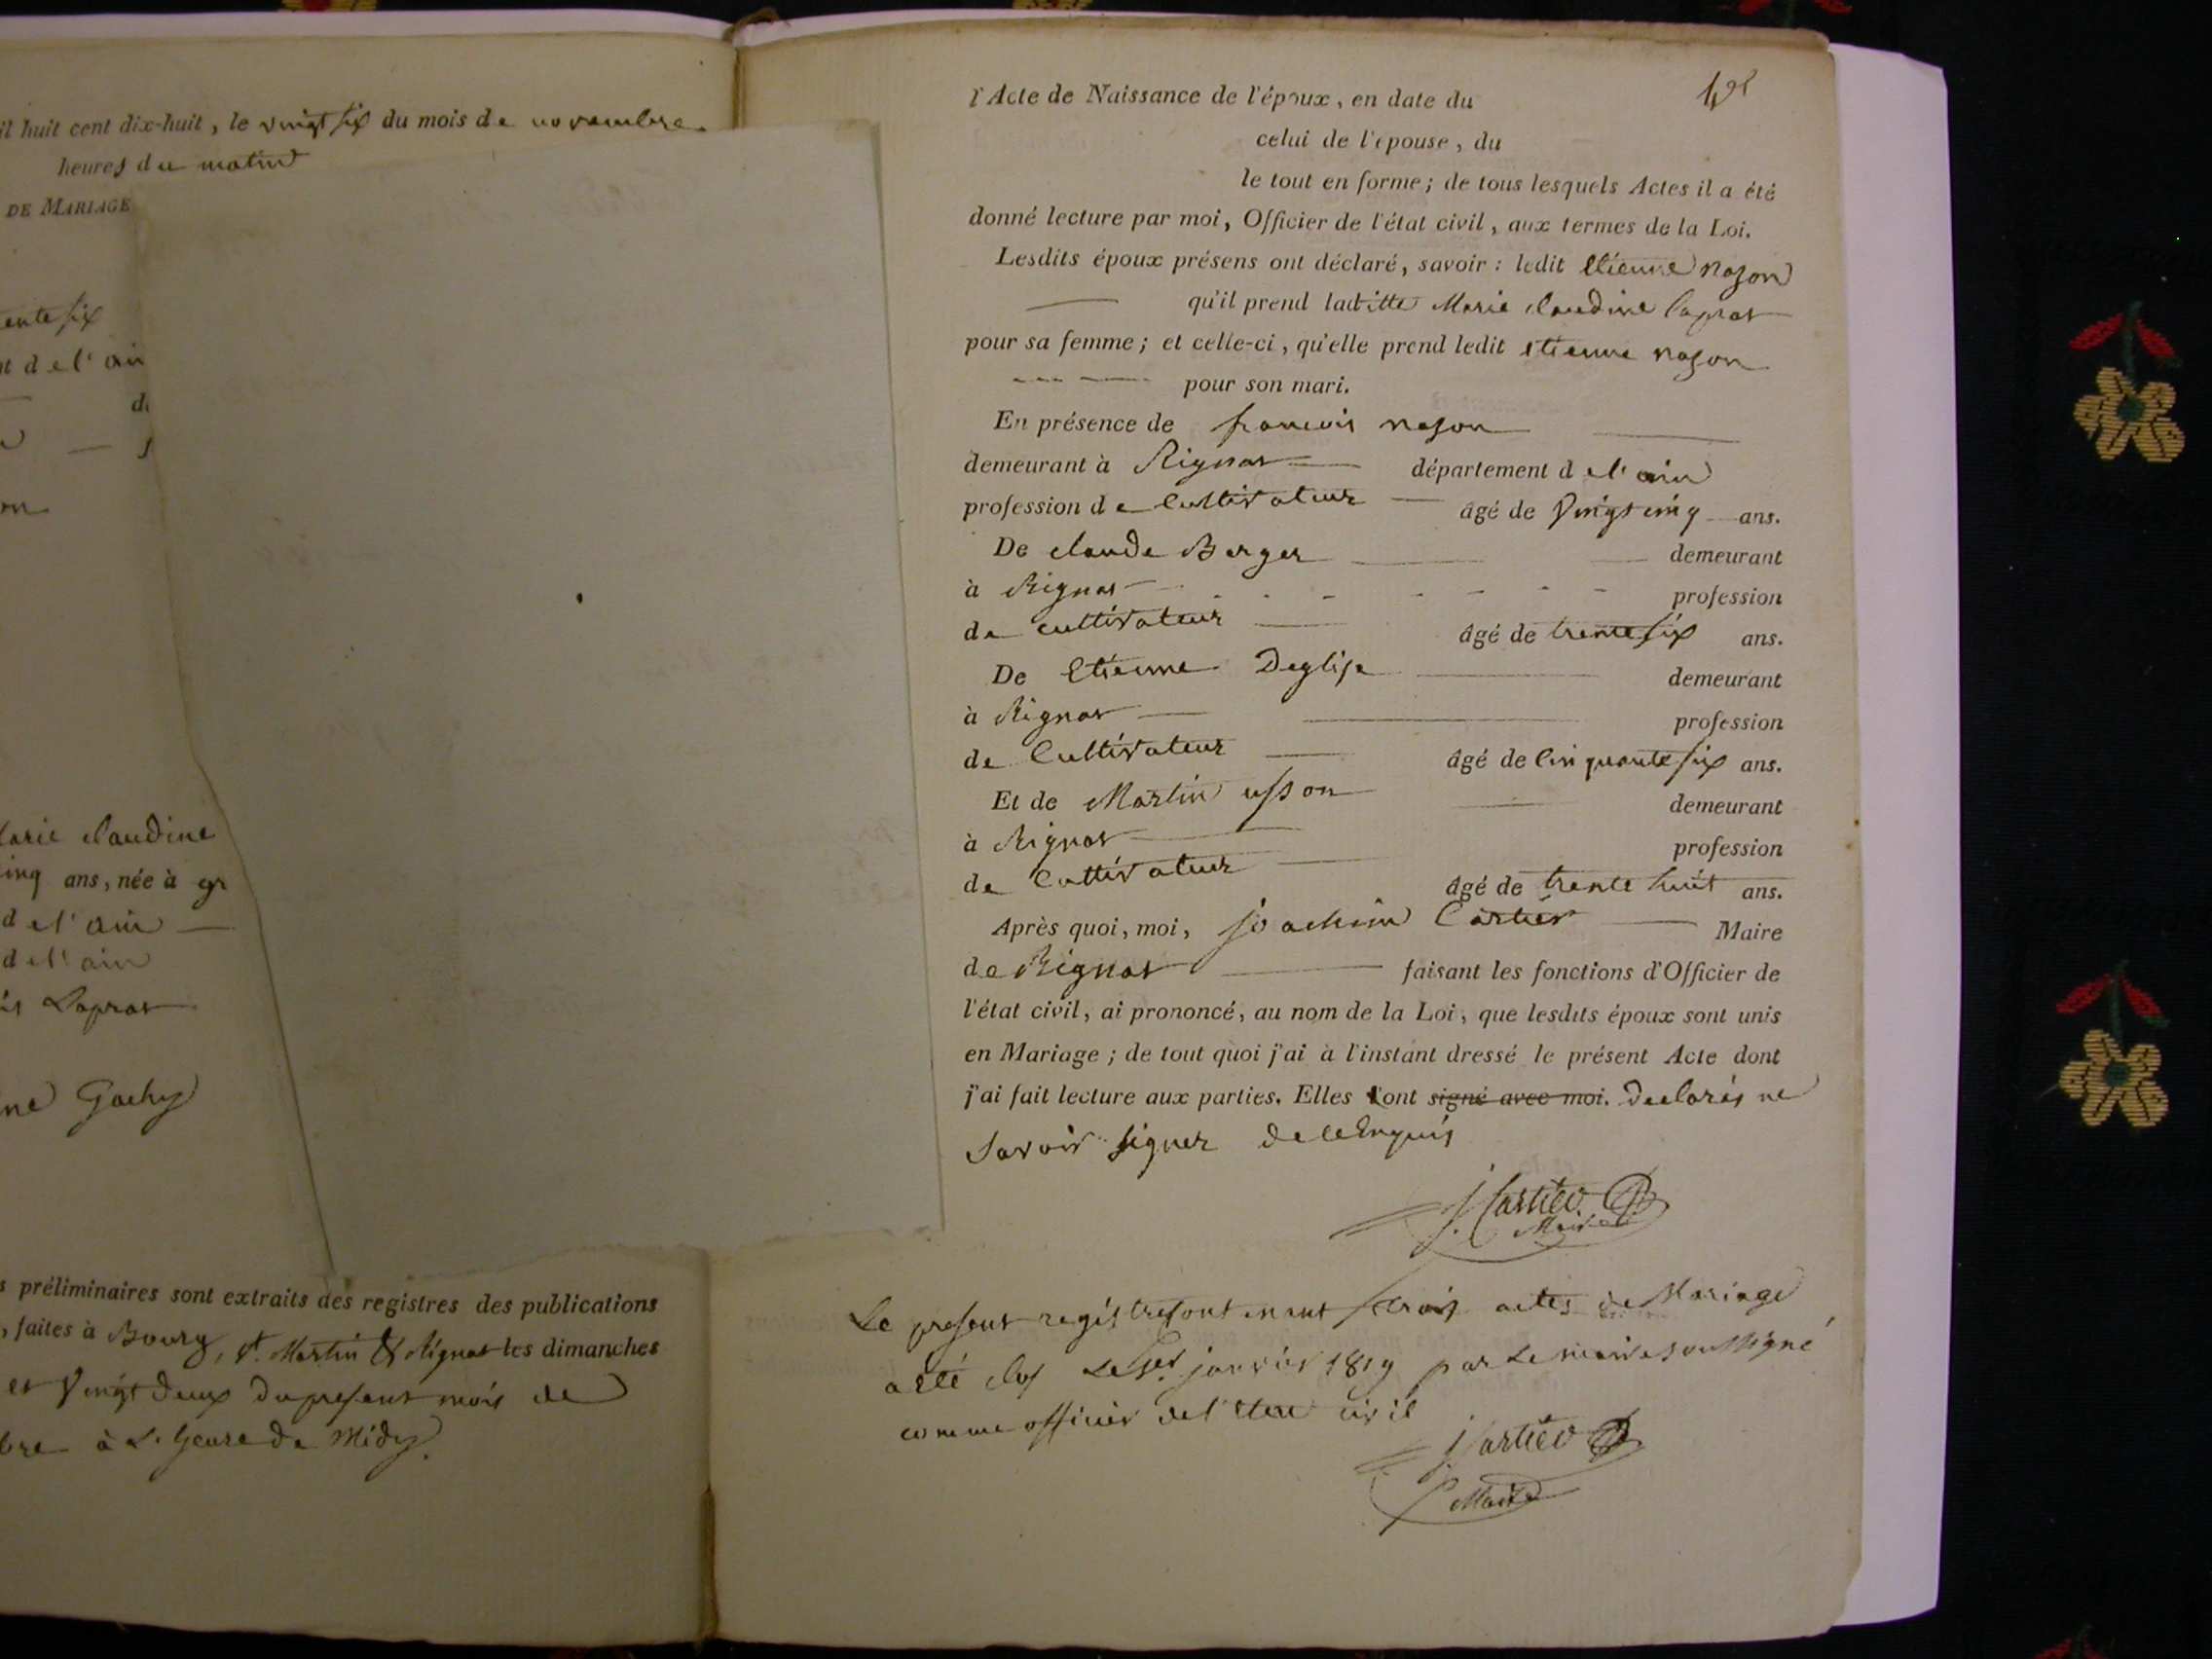 il huit cent dix-huit, le vingt six du mois de novembre
heures du matin
DE MARIAGE
ente six
t de l'ain
on
Marie claudine
inq ans, née à gr
de l'ain
de l'ain
is Lapras
ne Gachy
s préliminaires sont extraits des registres des publications
, faites à Bourg, st. Martin & Rignat les dimanches
et Vingt deux du present mois de
bre à l'heure de Midy.
l'Acte de Naissance de l'époux, en date du
celui de l'épouse, du
le tout en forme; de tous lesquels Actes il a été
donné lecture par moi, Officier de l'état civil, aux termes de la Loi.
Lesdits époux présens ont déclaré, savoir: ledit Etienne
qu'il prend laditte Marie claudine lapras
pour sa femme; et celle-ci, qu'elle prend ledit etienne
pour son mari.
En présence de francois
demeurant à Rignat département de l'ain
profession de Cultivateur âgé de Vingt cinq ans.
De claude Berger demeurant
à Rignat profession
de cultivateur âgé de trente six ans.
De Etienne Deglise demeurant
à Rignat profession
de Cultivateur âgé de Cinquante six ans.
Et de Martin usson demeurant
à Rignat profession
de Cultivateur âgé de trente huit ans.
Après quoi, moi, joachim Cartier Maire
de Rignat faisant les fonctions d'Officier de
l'état civil, ai prononcé, au nom de la Loi, que lesdits époux sont unis
en Mariage; de tout quoi j'ai à l'instant dressé le présent Acte dont
j'ai fait lecture aux parties. Elles ont signé avec moi. declarés ne
Savoir signer de ce Enquis
J. Cartier
Maire
Le present registre contenant trois actes de Mariage
a été clos Le 1er. janvier 1819 par Le maire soussigné
comme officier de l'etat civil
J. Cartier
Maire